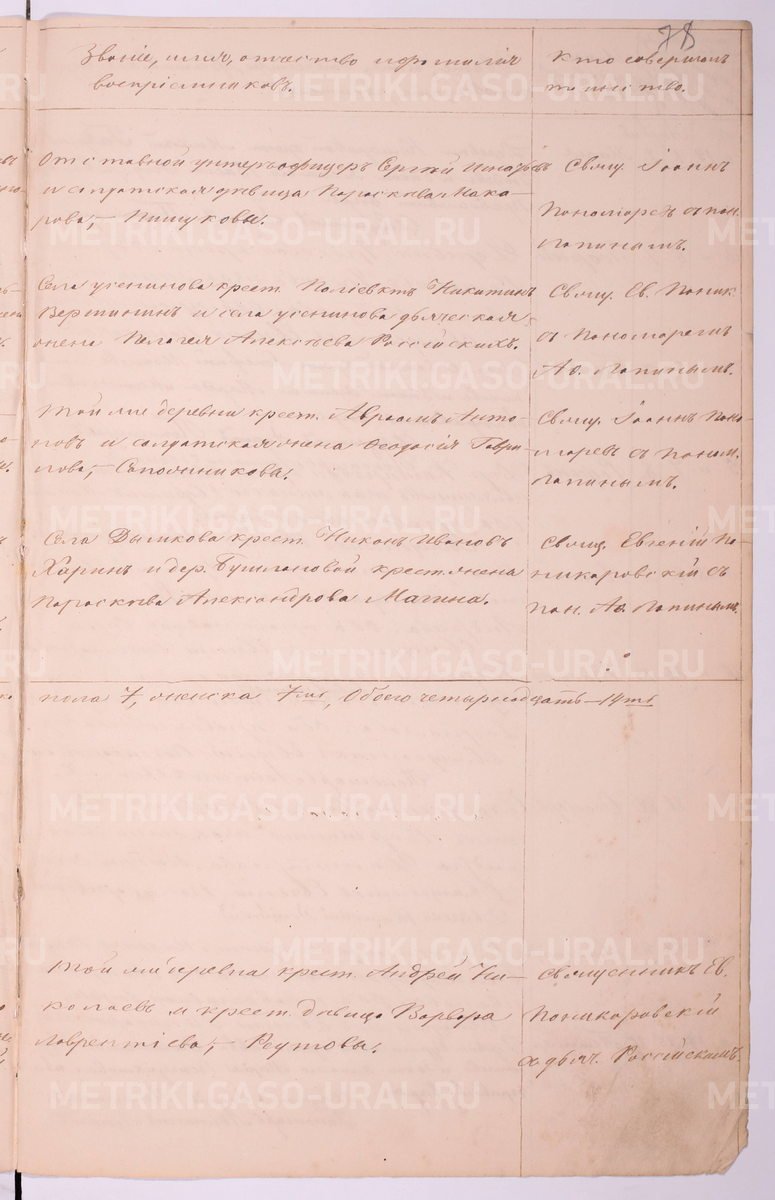 78
Званіе, имя, отчество и фамилія
воспріемниковъ.
Кто совершалъ
таинство.
Отставной унтеръ-офицеръ Сергѣй
и солдатская дѣвица Параскева Мака-
рова, – Пишуковы.
Свящ. Іоаннъ
Пономаревъ съ пон.
Лапинымъ.
Села Усенинова крест. Поліевктъ Никитинъ
Вершининъ и села Усенинова дьяческая
жена Пелагея Алексѣева Россійскихъ.
Свящ. Ев. Поник.
съ Пономаремъ
Аѳ. Лапинымъ.
Той же деревни крест. Авраамъ Анто-
новъ и солдатская жена Ѳеодосія Гаври-
лова, – Сапожникова.
Свящ. Іоаннъ Поно-
маревъ съ Поном.
Лапинымъ.
Села Дымкова крест. Никонъ Ивановъ
Харинъ и дер. Бушлановой крест. жена
Параскева Александрова Магина.
Свящ. Евгеній По-
никаровскій съ
Пон. Аѳ. Лапинымъ
пола 7, женска 7мь, Обоего четырнадцать – 14ть
Той же деревни крест. Андрей Ни-
колаевъ и крест. дѣвица Варвара
Лаврентіева, – Реутовы.
Священникъ Ев.
Поникаровскій
съ дьяч. Россійскимъ.
METRIKI.GASO-URAL.RU